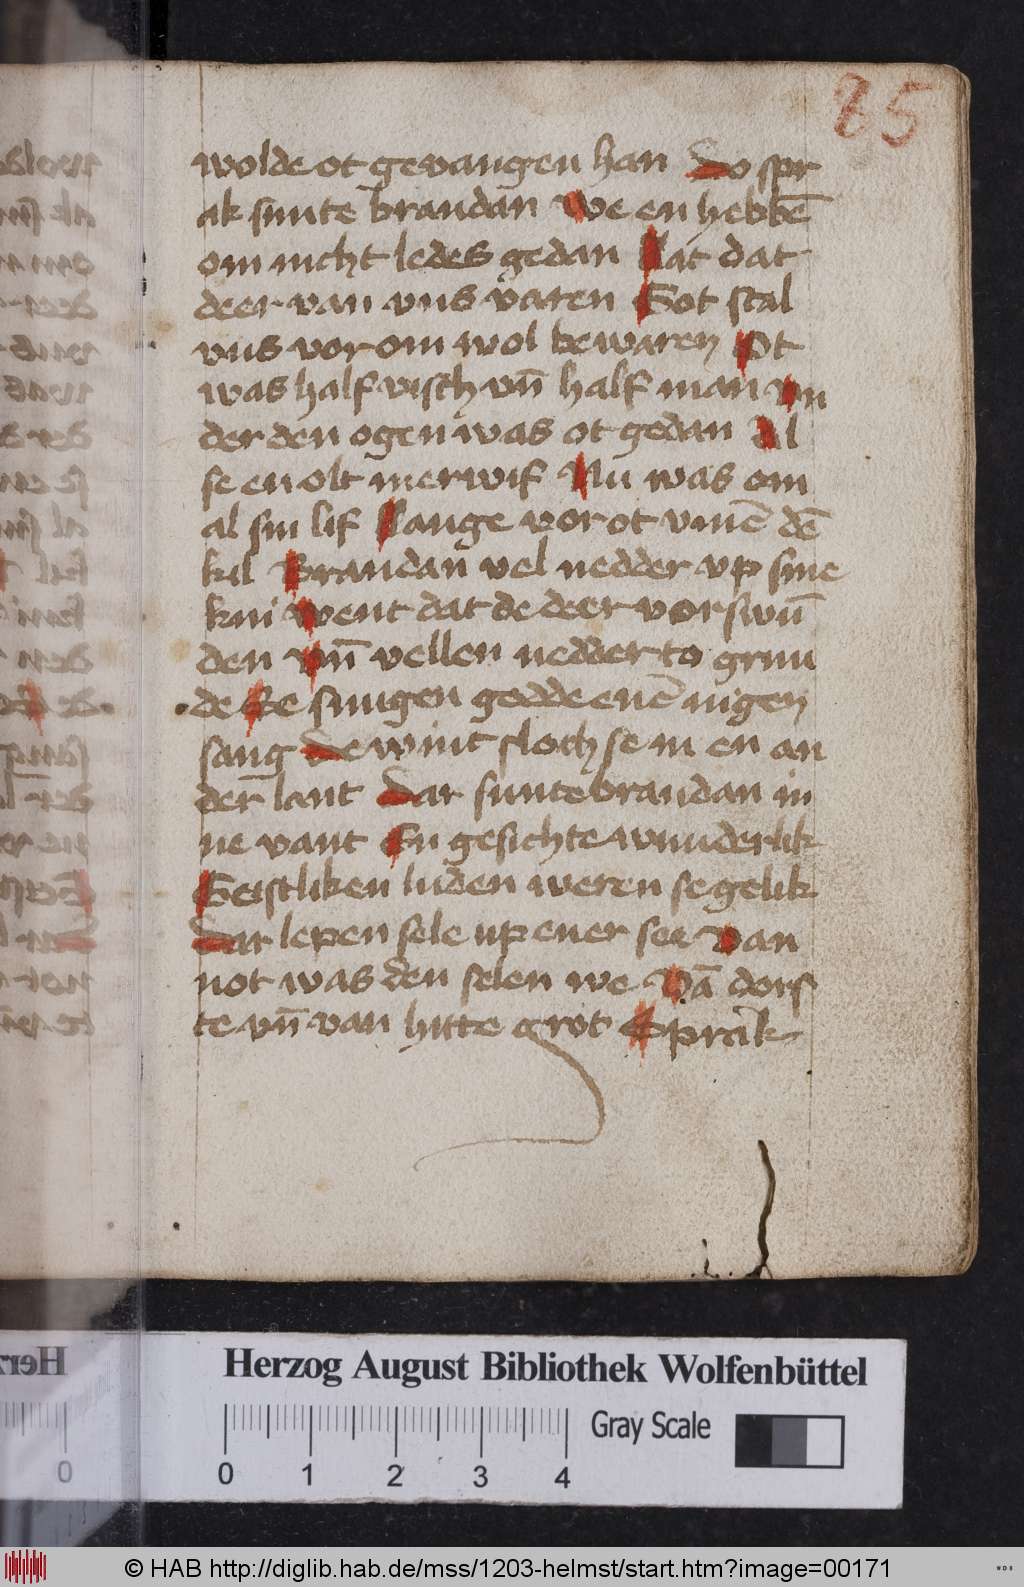 85
wolde ot gevangen han Do spr
ak sunte brandan We en hebbē
om nicht ledes gedan Lat dat
deer van vns varen Got scal
vns vor om wol bewaren Ot
was half visch vn̄ half man vn
der den ogen was ot gedan Al
se en olt merwif Nu was om
al sin lif Lange vor ot vmē dē
kil Brandan vel nedder vp sine
kni Went dat de deer vorswū
den Vn̄ vellen nedder to grun
de Se sungen godde enē nigen
sang De wint sloch se in en an
der lant Dar sunte brandan in
ne vant En gesichte wunderlik
Geistliken luden weren se gelik
Dar lepen sele up ener see Van
not was den selen we Vā dors
te vn̄ van hitte grot Sprak
Herzog August Bibliothek Wolfenbüttel
0 1 2 3 4
Gray Scale
© HAB http://diglib.hab.de/mss/1203-helmst/start.htm?image=00171